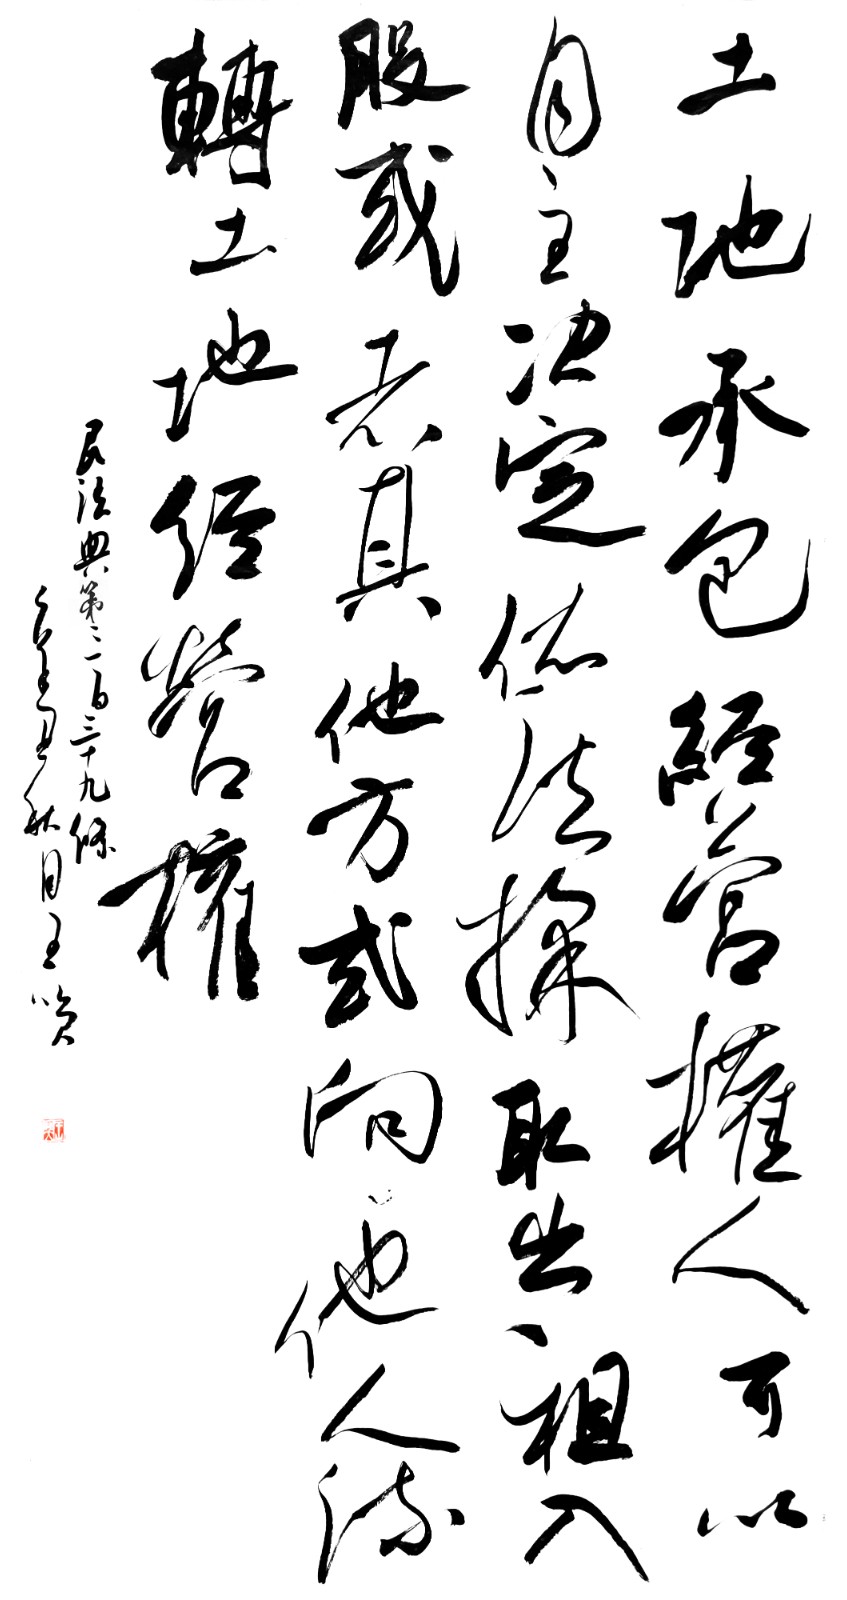 土地承包經营權人可以
自主决定依法採取出租入
股或者其他方式向他人流
轉土地经營權
民法典第三百三十九條
辛丑秋月王